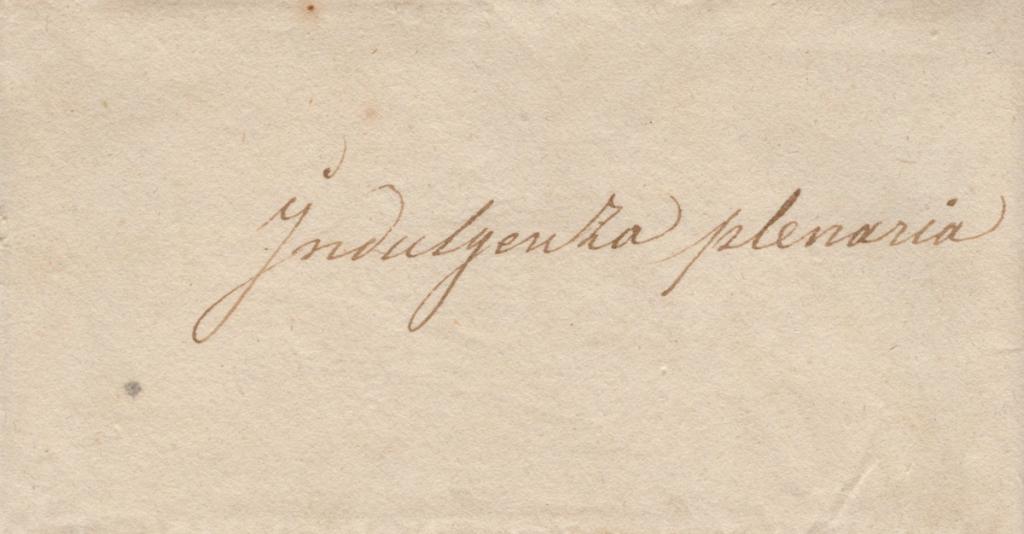 Indulgenza plenaria